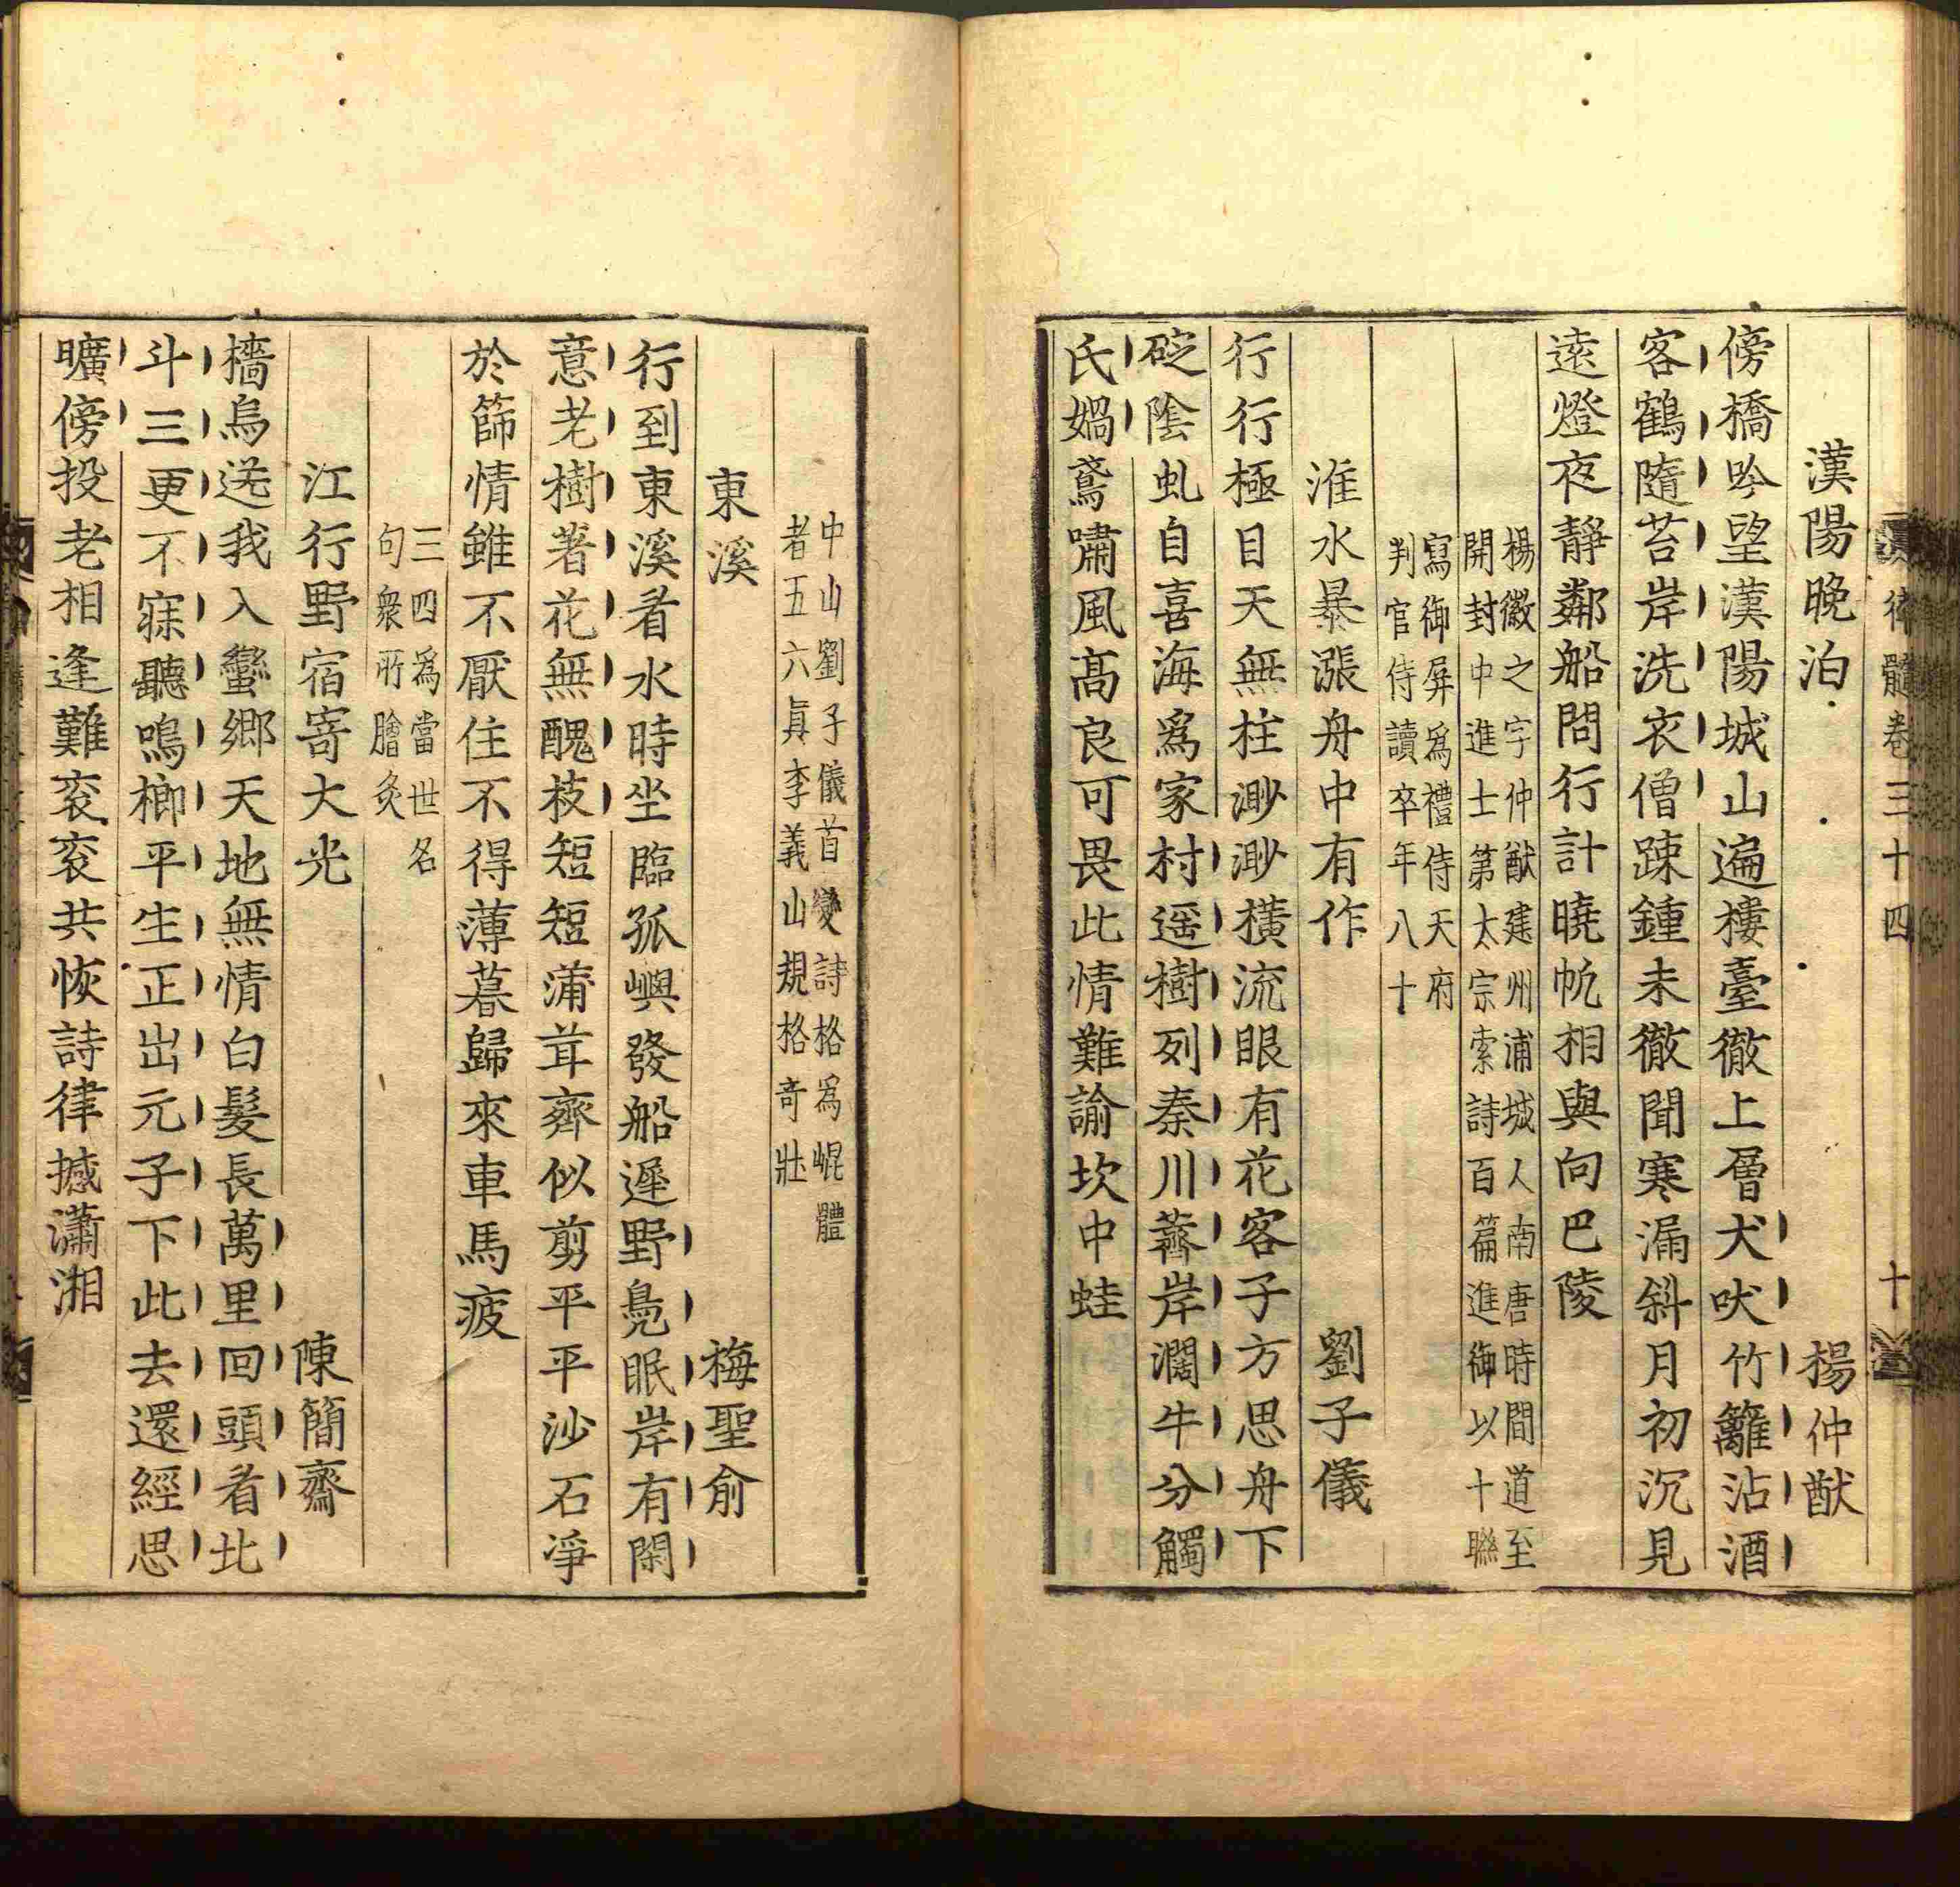 律髓卷三十四 十
漢陽晚泊 楊仲猷
傍橋吟望漢陽城山遍樓臺徹上層犬吠竹籬沾酒
客鶴隨苔岸洗衣僧踈鍾未徹聞寒漏斜月初沉見
遠燈夜静鄰船問行計曉帆相與向巴陵
楊徽之字仲猷建州浦城人南唐時間道至
開封中進士第太宗索詩百篇進御以十聯
寫御屏爲禮侍天府
判官侍讀卒年八十
淮水暴漲舟中有作 劉子儀
行行極目天無柱渺渺橫流眼有花客子方思舟下
碇陰虬自喜海爲家村遥樹列秦川薺岸濶牛分觸
氏蝸鳶嘯風髙良可畏此情難諭坎中蛙
中山劉子儀首變詩格爲崐體
者五六真李義山規格奇壯
東溪 梅聖俞
行到東溪看水時坐臨孤嶼發船遲野鳬眠岸有閑
意老樹著花無醜枝短短蒲茸齊似剪平平沙石淨
於篩情雖不厭住不得薄暮歸來車馬疲
三四爲當世名
句衆所膾炙
江行野宿寄大光 陳簡齋
檣烏送我入蠻鄉天地無情白髮長萬里回頭看北
斗三更不寐聽鳴榔平生正出元子下此去還經思
曠傍投老相逢難衮衮共恢詩律撼瀟湘